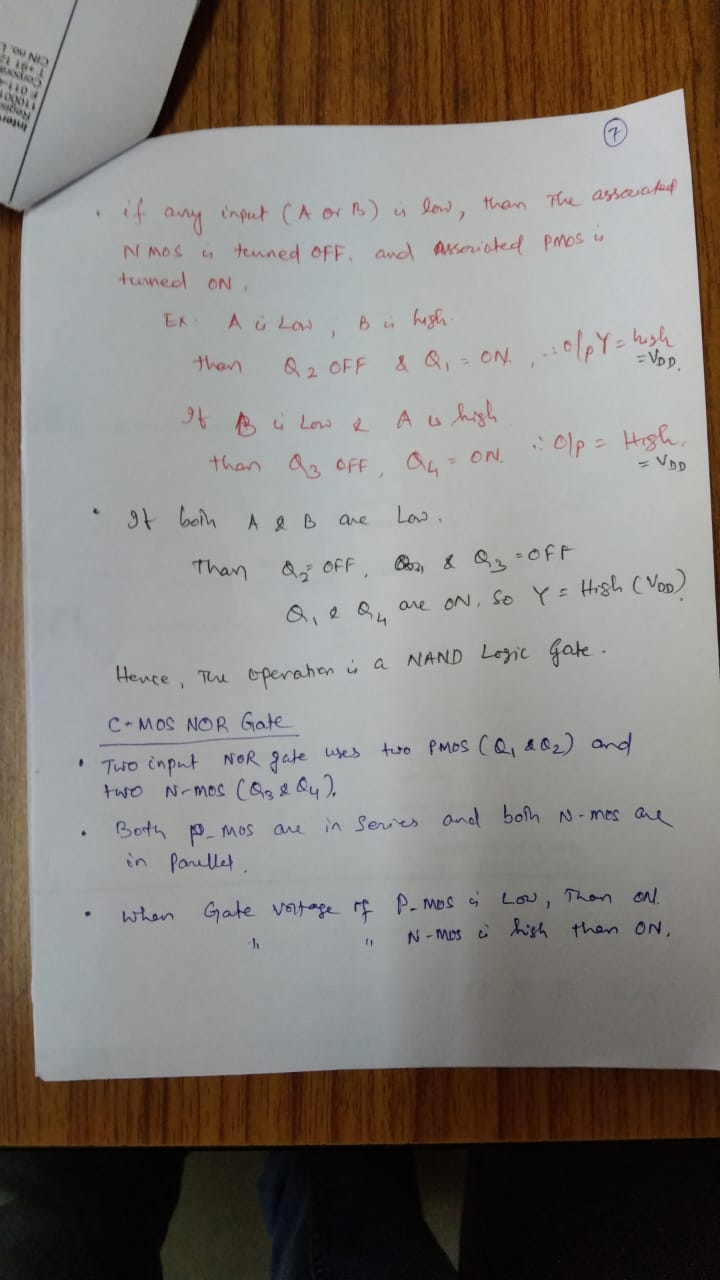 Inter
Regis
11000
Corpora
CIN no.
7
• if any input (A or B) is low, than The associated
N MOS is tunned OFF. and Associated PMOS is
tunned ON.
Ex. A is Low, B is high.
than Q2 OFF & Q1 = ON. , ∴ o/p Y = high
= VDD.
If B is Low & A is high
than Q3 OFF, Q4 = ON. ∴ O/p = High.
= VDD
• If both A & B are Low.
Than Q2 = OFF, & Q3 = OFF
Q1 & Q4 are ON. So Y = High (VDD)
Hence, The operation is a NAND Logic Gate.
C-MOS NOR Gate
• Two input NOR gate uses two PMOS (Q1 & Q2) and
two N-MOS (Q3 & Q4).
• Both P-MOS are in Series and both N-mos are
in Parellel.
• When Gate Voltage of P-MOS is Low, Than ON.
" " N-MOS is high than ON.